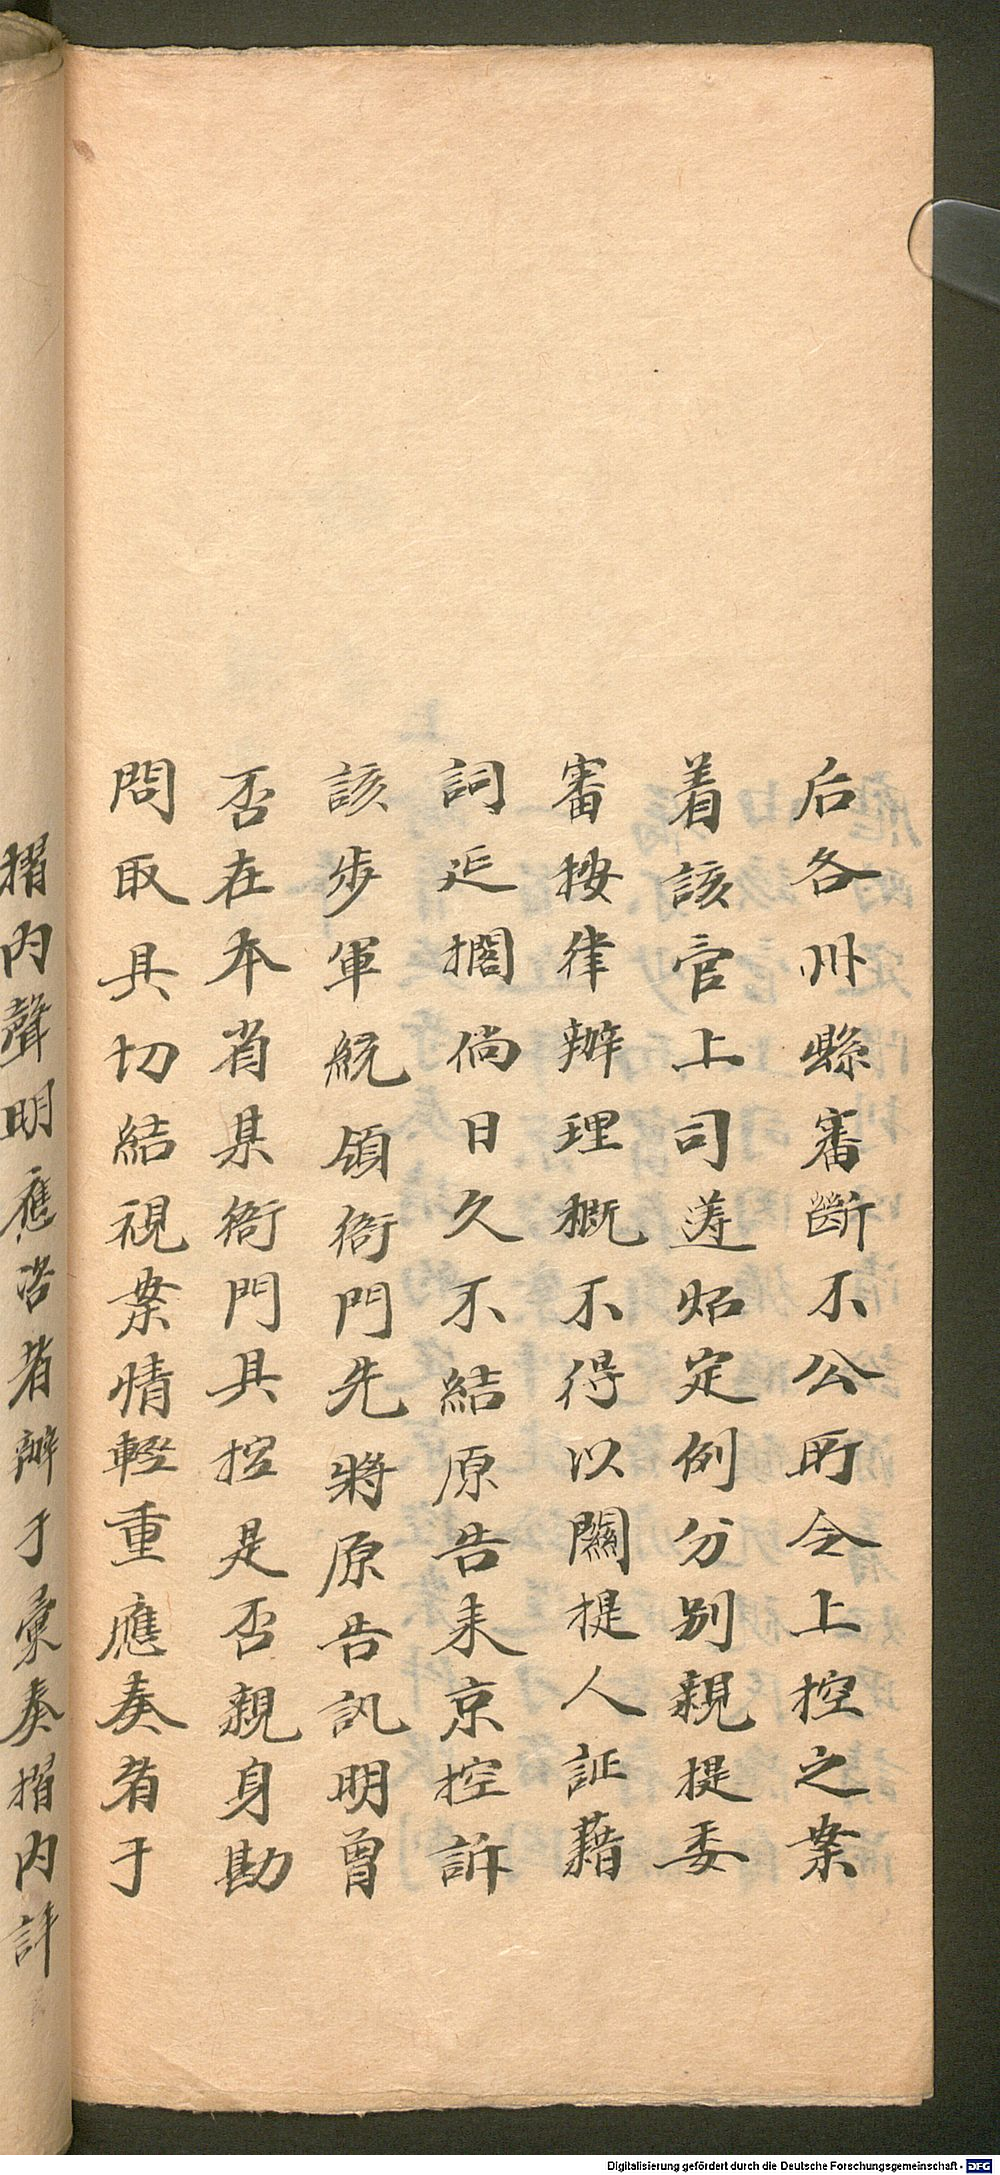 后各州縣審斷不公所令上控之案
着該官上司遵炤定例分别親提委
審按律辦理概不得以關提人証藉
詞延擱倘日久不結原告来京控訴
該步軍統領衙門先將原告訊明曾
否在本省某衙門具控是否親身勘
問取具切結視案情輕重應奏者于
摺内聲明應咨者辦于彙奏摺内詳
Digitalisierung gefördert durch die Deutsche Forschungsgemeinschaft - DFG